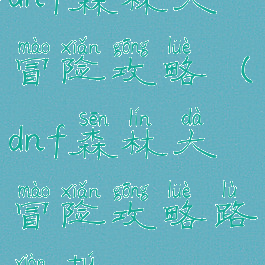 dnf森林大
mào xiǎn gōng lüè
冒险攻略（
sēn lín dà
dnf森林大
mào xiǎn gōng lüè lù
冒险攻略路
xiàn tú